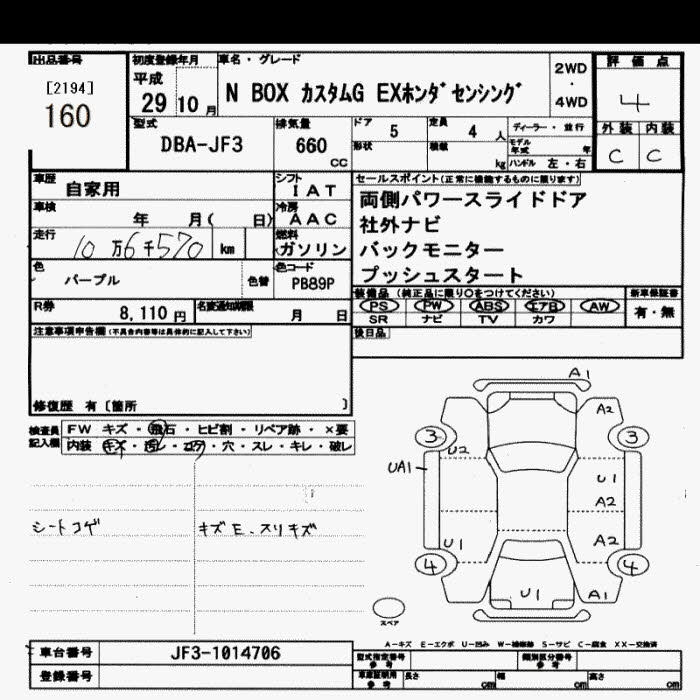 出品番号
[2194]
160
初度登録年月
平成
29 10 月
車名・グレード
N BOX カスタムG EXホンダセンシング
2WD
・
4WD
評価点
4
外装 内装
C C
型式
DBA-JF3
排気量
660
CC
ドア
5
形状
定員
4 人
積載
kg
ディーラー・並行
モデル年式 年
ハンドル 左・右
車歴
自家用
シフト
IAT
車検
年 月( 日)
冷房
AAC
走行
10万6千570 km
燃料
ガソリン
色
パープル
色替
色コード
PB89P
R券
8,110 円
名変通知期限
月 日
セールスポイント(正常に機能するものに限ります)
両側パワースライドドア
社外ナビ
バックモニター
プッシュスタート
装備品 (純正品に限り○をつけてください)
PS PW ABS エアB AW
SR ナビ TV カワ
新車保証書
有・無
後日品
注意事項申告欄(不具合内容等は具体的に記入して下さい)
修復歴 有〔箇所 〕
検査員
記入欄
FW キズ・飛石・ヒビ割・リペア跡・×要
内装 キズ・汚レ・コゲ・穴・スレ・キレ・破レ
シートコゲ
キズE.スリキズ
A1
A2
3 3
U2
UA1
U1
A2
U1
A2
4 4
U1
A1
スペア
A-キズ E-エクボ U-凹み W-補修跡 S-サビ C-腐食 XX-交換済
車台番号
JF3-1014706
登録番号
型式指定番号
参考
類別区分番号
参考
車庫証明用
参考
長さ cm
幅 cm
高さ cm